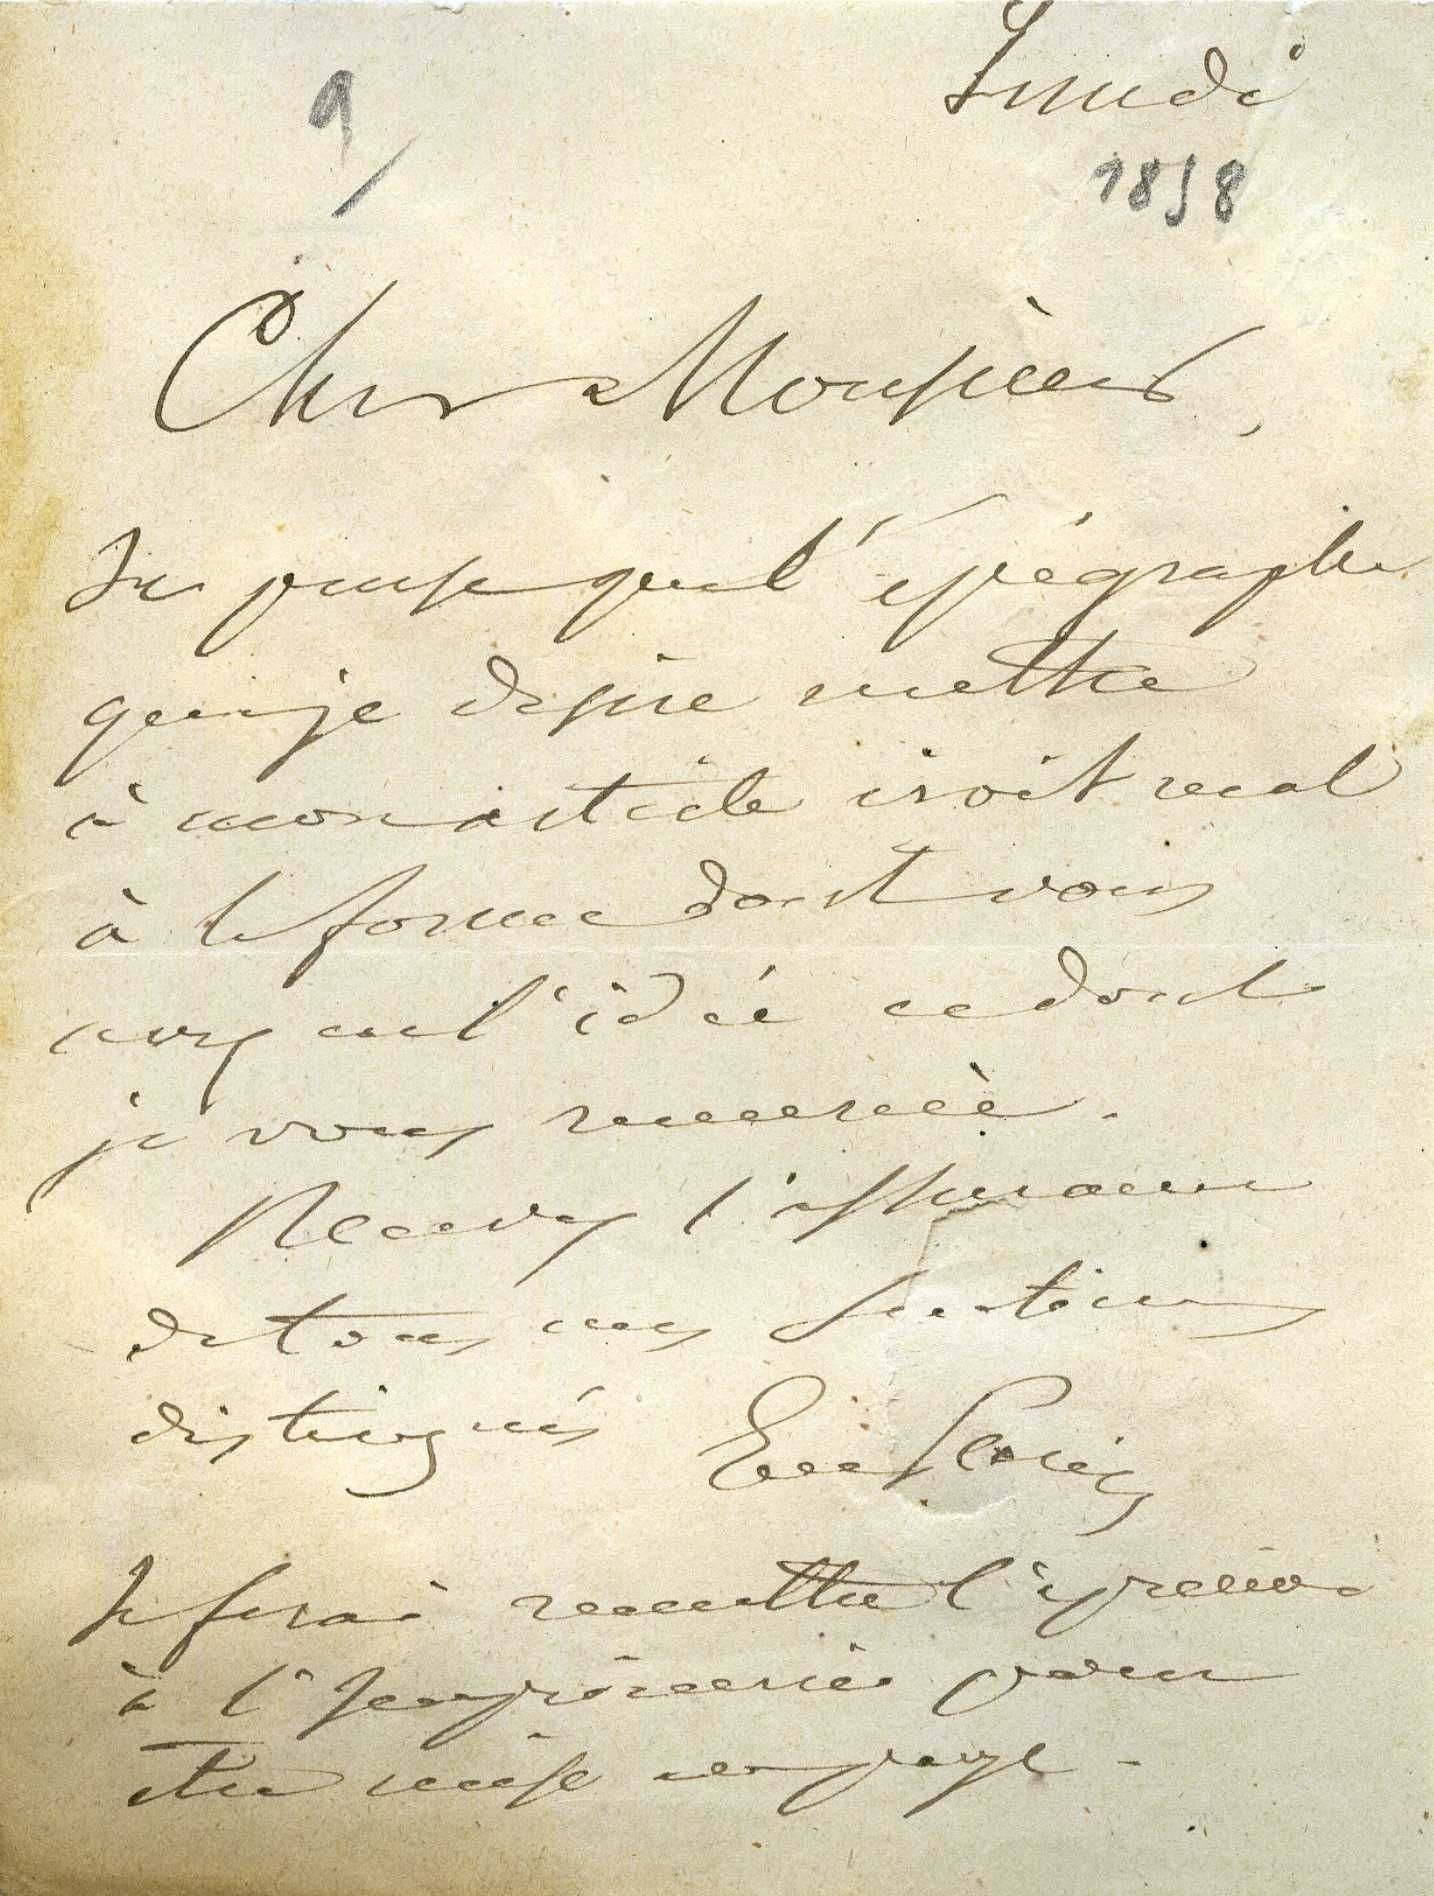 Lundi
9/
1858
Cher Monsieur,
Je pense que l'épigraphe
que je desire mettre
à mon article iroit mal
à la forme dont vous
avez eu l'idée et dont
je vous remercie.
Recevez l'assurance
de tous mes sentimens
distingués Eug
Je ferai remettre l'épreuve
à l'Imprimerie pour
être mise en page.